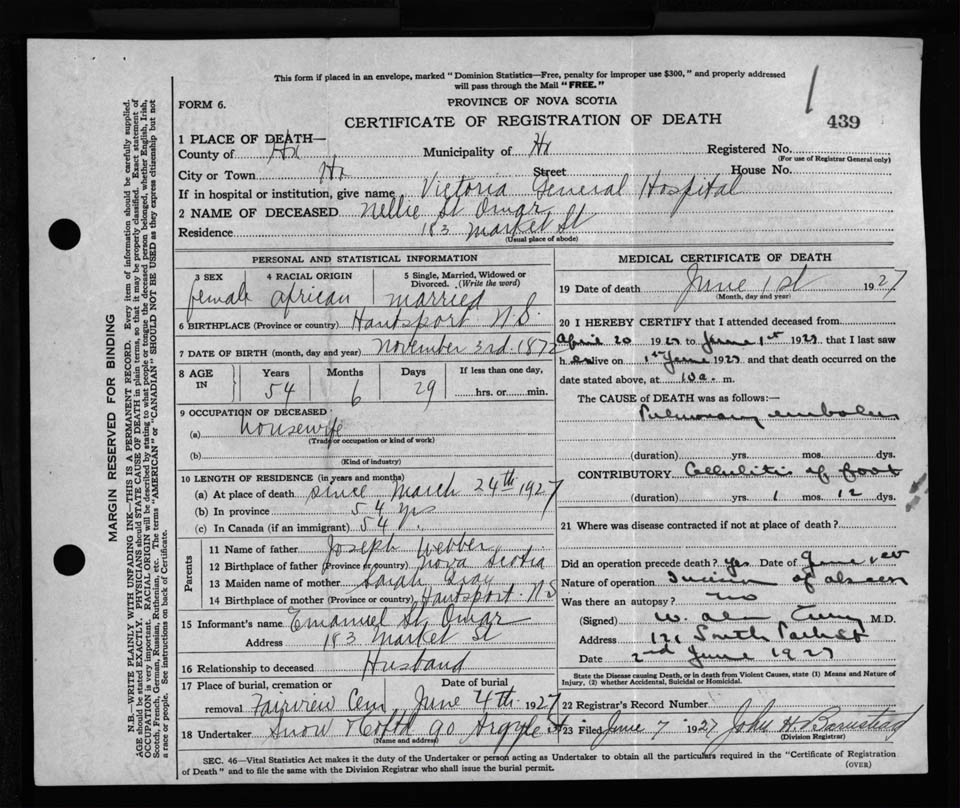 This form if placed in an envelope, marked "Dominion Statistics—Free, penalty for improper use $300," and properly addressed
will pass through the Mail "FREE."
1
FORM 6.
PROVINCE OF NOVA SCOTIA
CERTIFICATE OF REGISTRATION OF DEATH
439
1 PLACE OF DEATH—
County of Hx Municipality of Hx Registered No.
(For use of Registrar General only)
City or Town Hx Street House No.
If in hospital or institution, give name Victoria General Hospital
2 NAME OF DECEASED Nellie St Omar
Residence 183 Market St
(Usual place of abode)
PERSONAL AND STATISTICAL INFORMATION
3 SEX 4 RACIAL ORIGIN 5 Single, Married, Widowed or
Divorced. (Write the word)
female african married
6 BIRTHPLACE (Province or country) Hantsport N.S.
7 DATE OF BIRTH (month, day and year) November 3rd. 1872
8 AGE IN Years Months Days If less than one day,
54 6 29 hrs. or min.
9 OCCUPATION OF DECEASED
(a) housewife
(Trade or occupation or kind of work)
(b)
(Kind of industry)
10 LENGTH OF RESIDENCE (in years and months)
(a) At place of death since March 24th 1927
(b) In province 54 yrs
(c) In Canada (if an immigrant) 54.
Parents
11 Name of father Joseph Webber
12 Birthplace of father (Province or country) Nova Scotia
13 Maiden name of mother Sarah Gray
14 Birthplace of mother (Province or country) Hantsport. N S
15 Informant's name Emanuel St. Omar
Address 183 Market St
16 Relationship to deceased Husband
17 Place of burial, cremation or removal Date of burial
Fairview Cem June 4th. 1927
18 Undertaker Snow & Co Ltd 90 Argyle St
(Name and address)
MEDICAL CERTIFICATE OF DEATH
19 Date of death June 1st 1927
(Month, day and year)
20 I HEREBY CERTIFY that I attended deceased from
April 20 1927 to June 1st 1927, that I last saw
her alive on 1st June 1927 and that death occurred on the
date stated above, at 10 a. m.
The CAUSE OF DEATH was as follows:—
Pulmonary embolus
(duration) yrs. mos. dys.
CONTRIBUTORY Cellulitis of foot
(duration) yrs. 1 mos. 12 dys.
21 Where was disease contracted if not at place of death?
Did an operation precede death? Yes Date of
Nature of operation of
Was there an autopsy? no
(Signed) W. M.D.
Address South Park St
Date 2nd June 1927
State the Disease causing Death, or in death from Violent Causes, state (1) Means and Nature of
Injury, (2) whether Accidental, Suicidal or Homicidal.
22 Registrar's Record Number
23 Filed June 7 1927 John H. Barnstead
(Division Registrar)
SEC. 46—Vital Statistics Act makes it the duty of the Undertaker or person acting as Undertaker to obtain all the particulars required in the "Certificate of Registration
of Death" and to file the same with the Division Registrar who shall issue the burial permit.
(OVER)
MARGIN RESERVED FOR BINDING
N.B.—WRITE PLAINLY WITH UNFADING INK—THIS IS A PERMANENT RECORD. Every item of information should be carefully supplied.
AGE should be stated EXACTLY. PHYSICIANS should STATE CAUSE OF DEATH in plain terms, so that it may be properly classified. Exact statement of
OCCUPATION is very important. RACIAL ORIGIN will be described by stating to what people or tongue the deceased person belonged, whether English, Irish,
Scotch, French, German, Russian, Ruthenian, etc. The terms "AMERICAN" or "CANADIAN" SHOULD NOT BE USED as they express citizenship but not
a race or people. See instructions on back of Certificate.